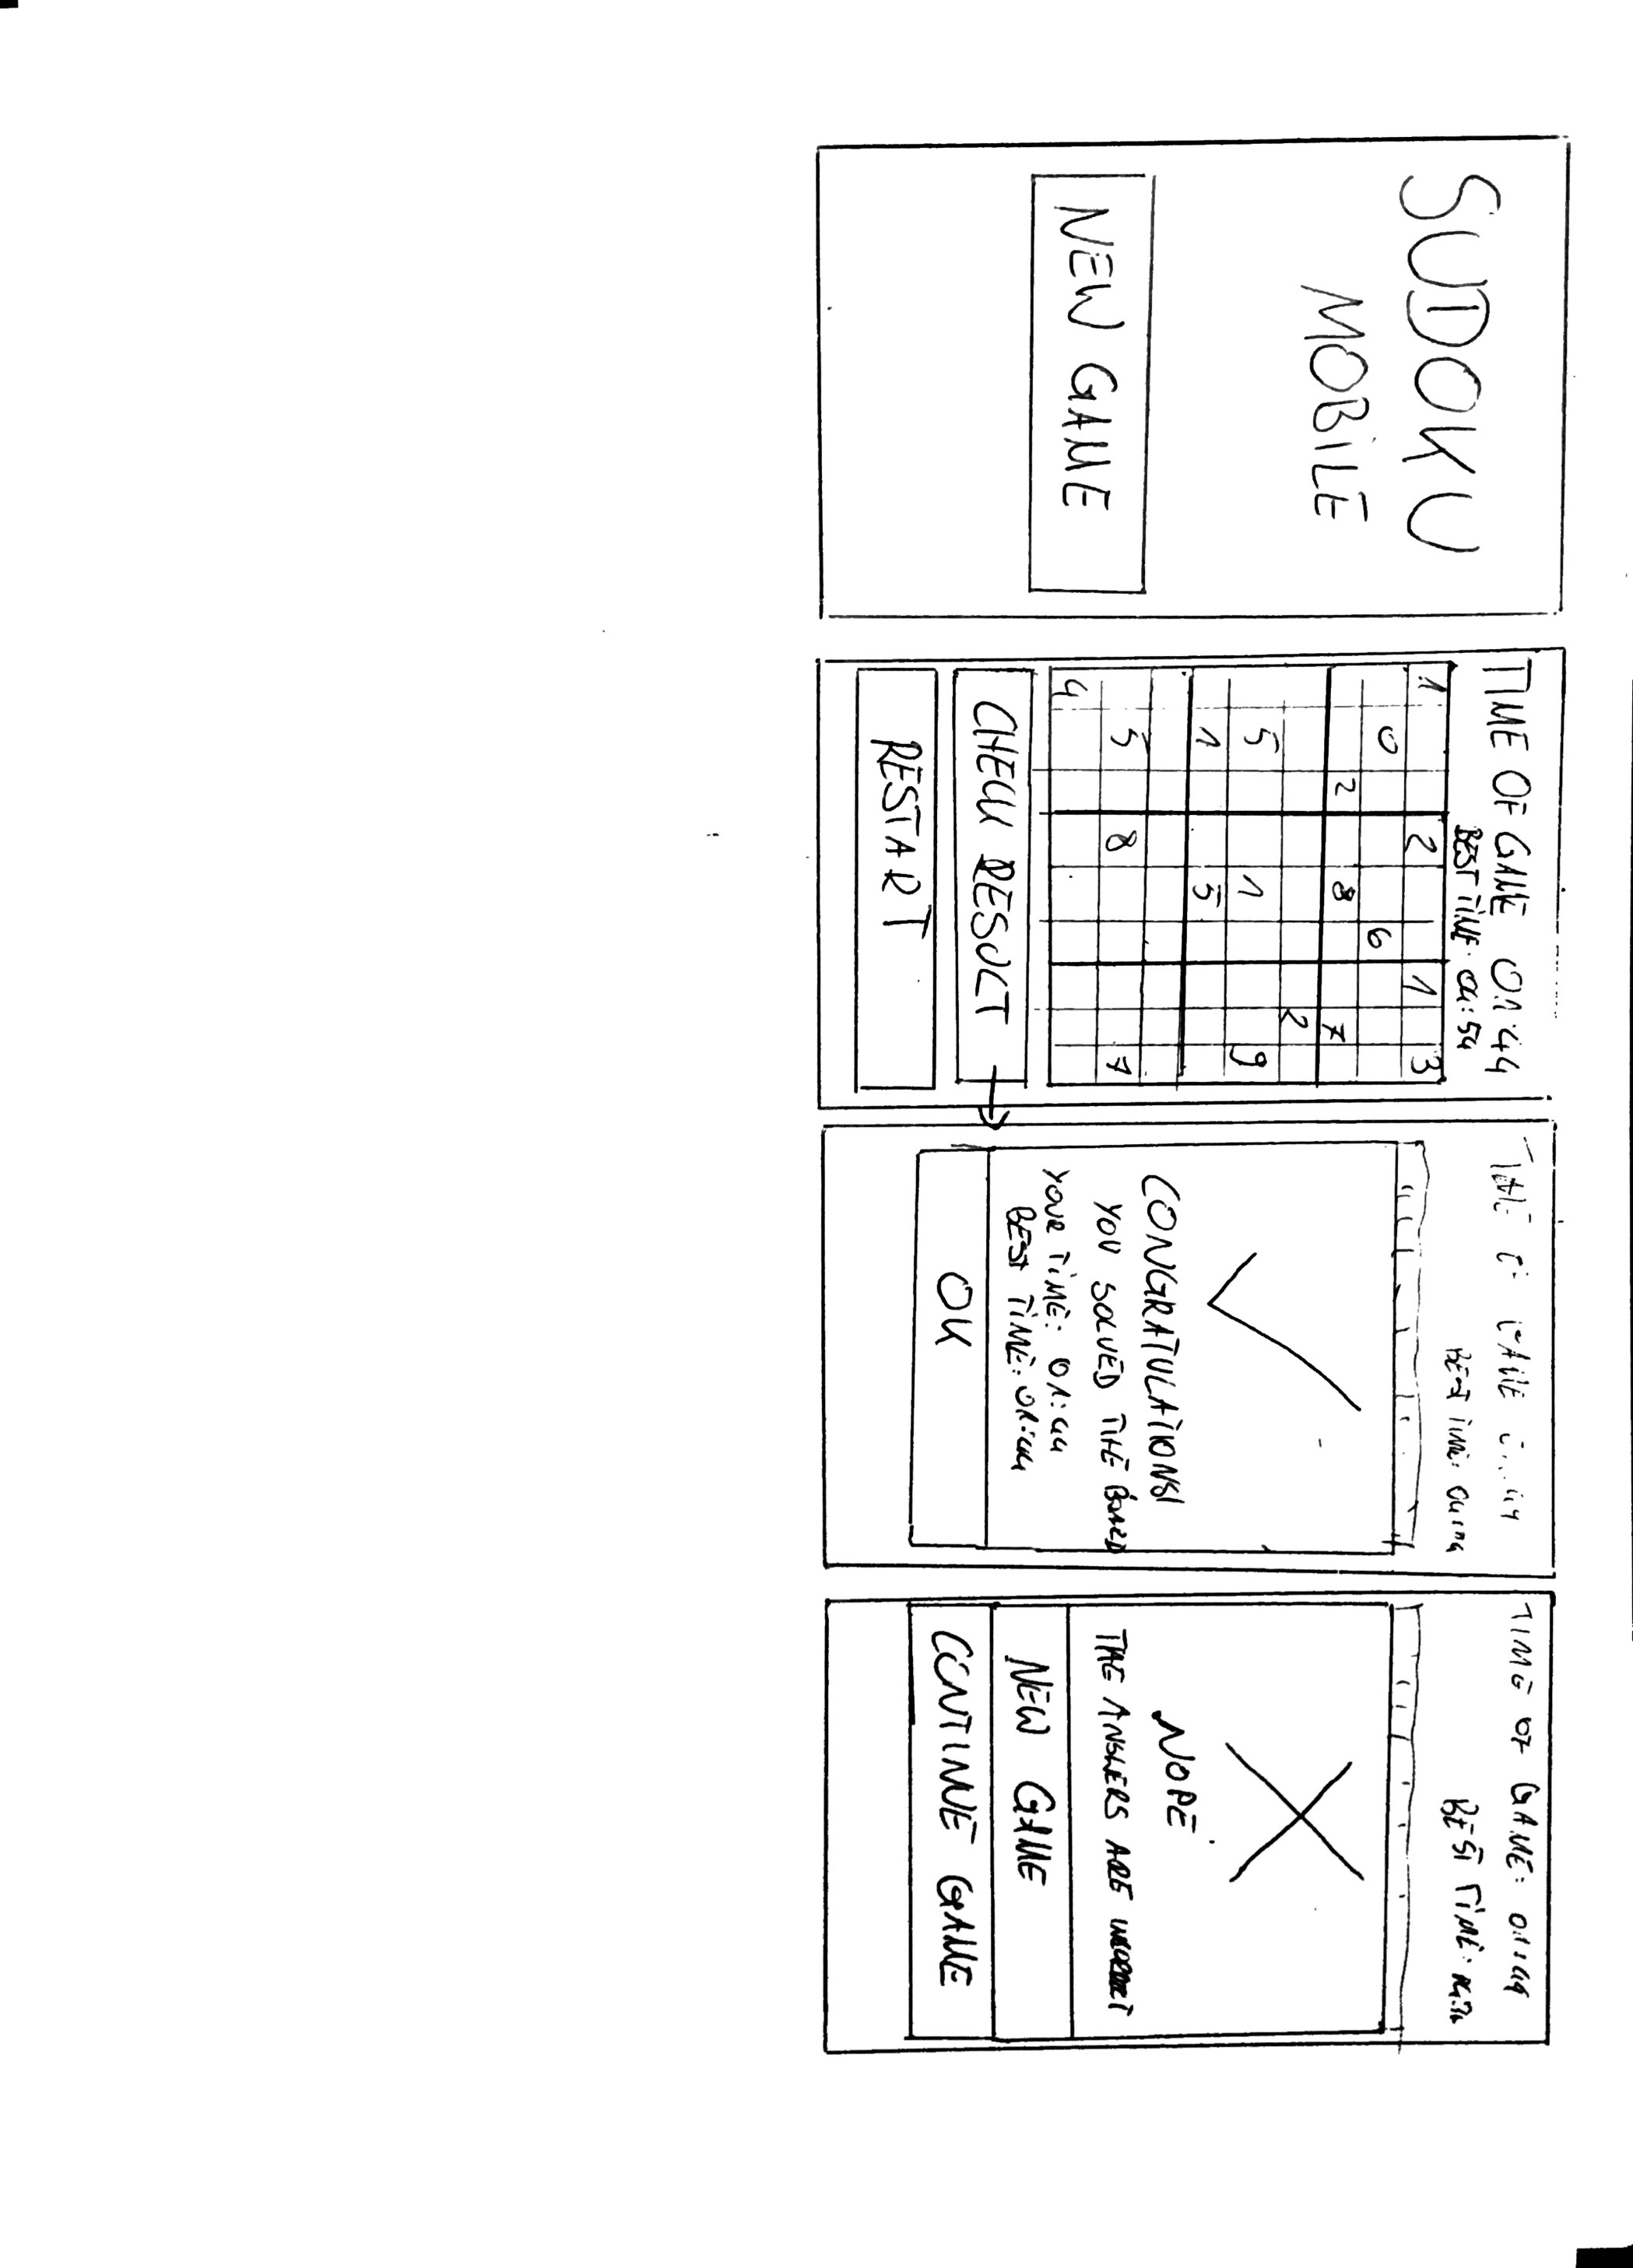 SUDOKU
MOBILE
NEW GAME
TIME OF GAME 01:44
BEST TIME:
1 2 1 3
0 6
2 8 7
2
5 1 9
1 5
5 8 7
4
CHECK RESULT
RESTART
BEST TIME:
CONGRATULATIONS!
YOU SOLVED THE BOARD
YOUR TIME: 01:44
BEST TIME: 01:44
OK
TIME OF GAME: 01:44
BEST TIME:
NOPE.
THE ANSWERS ARE
NEW GAME
CONTINUE GAME